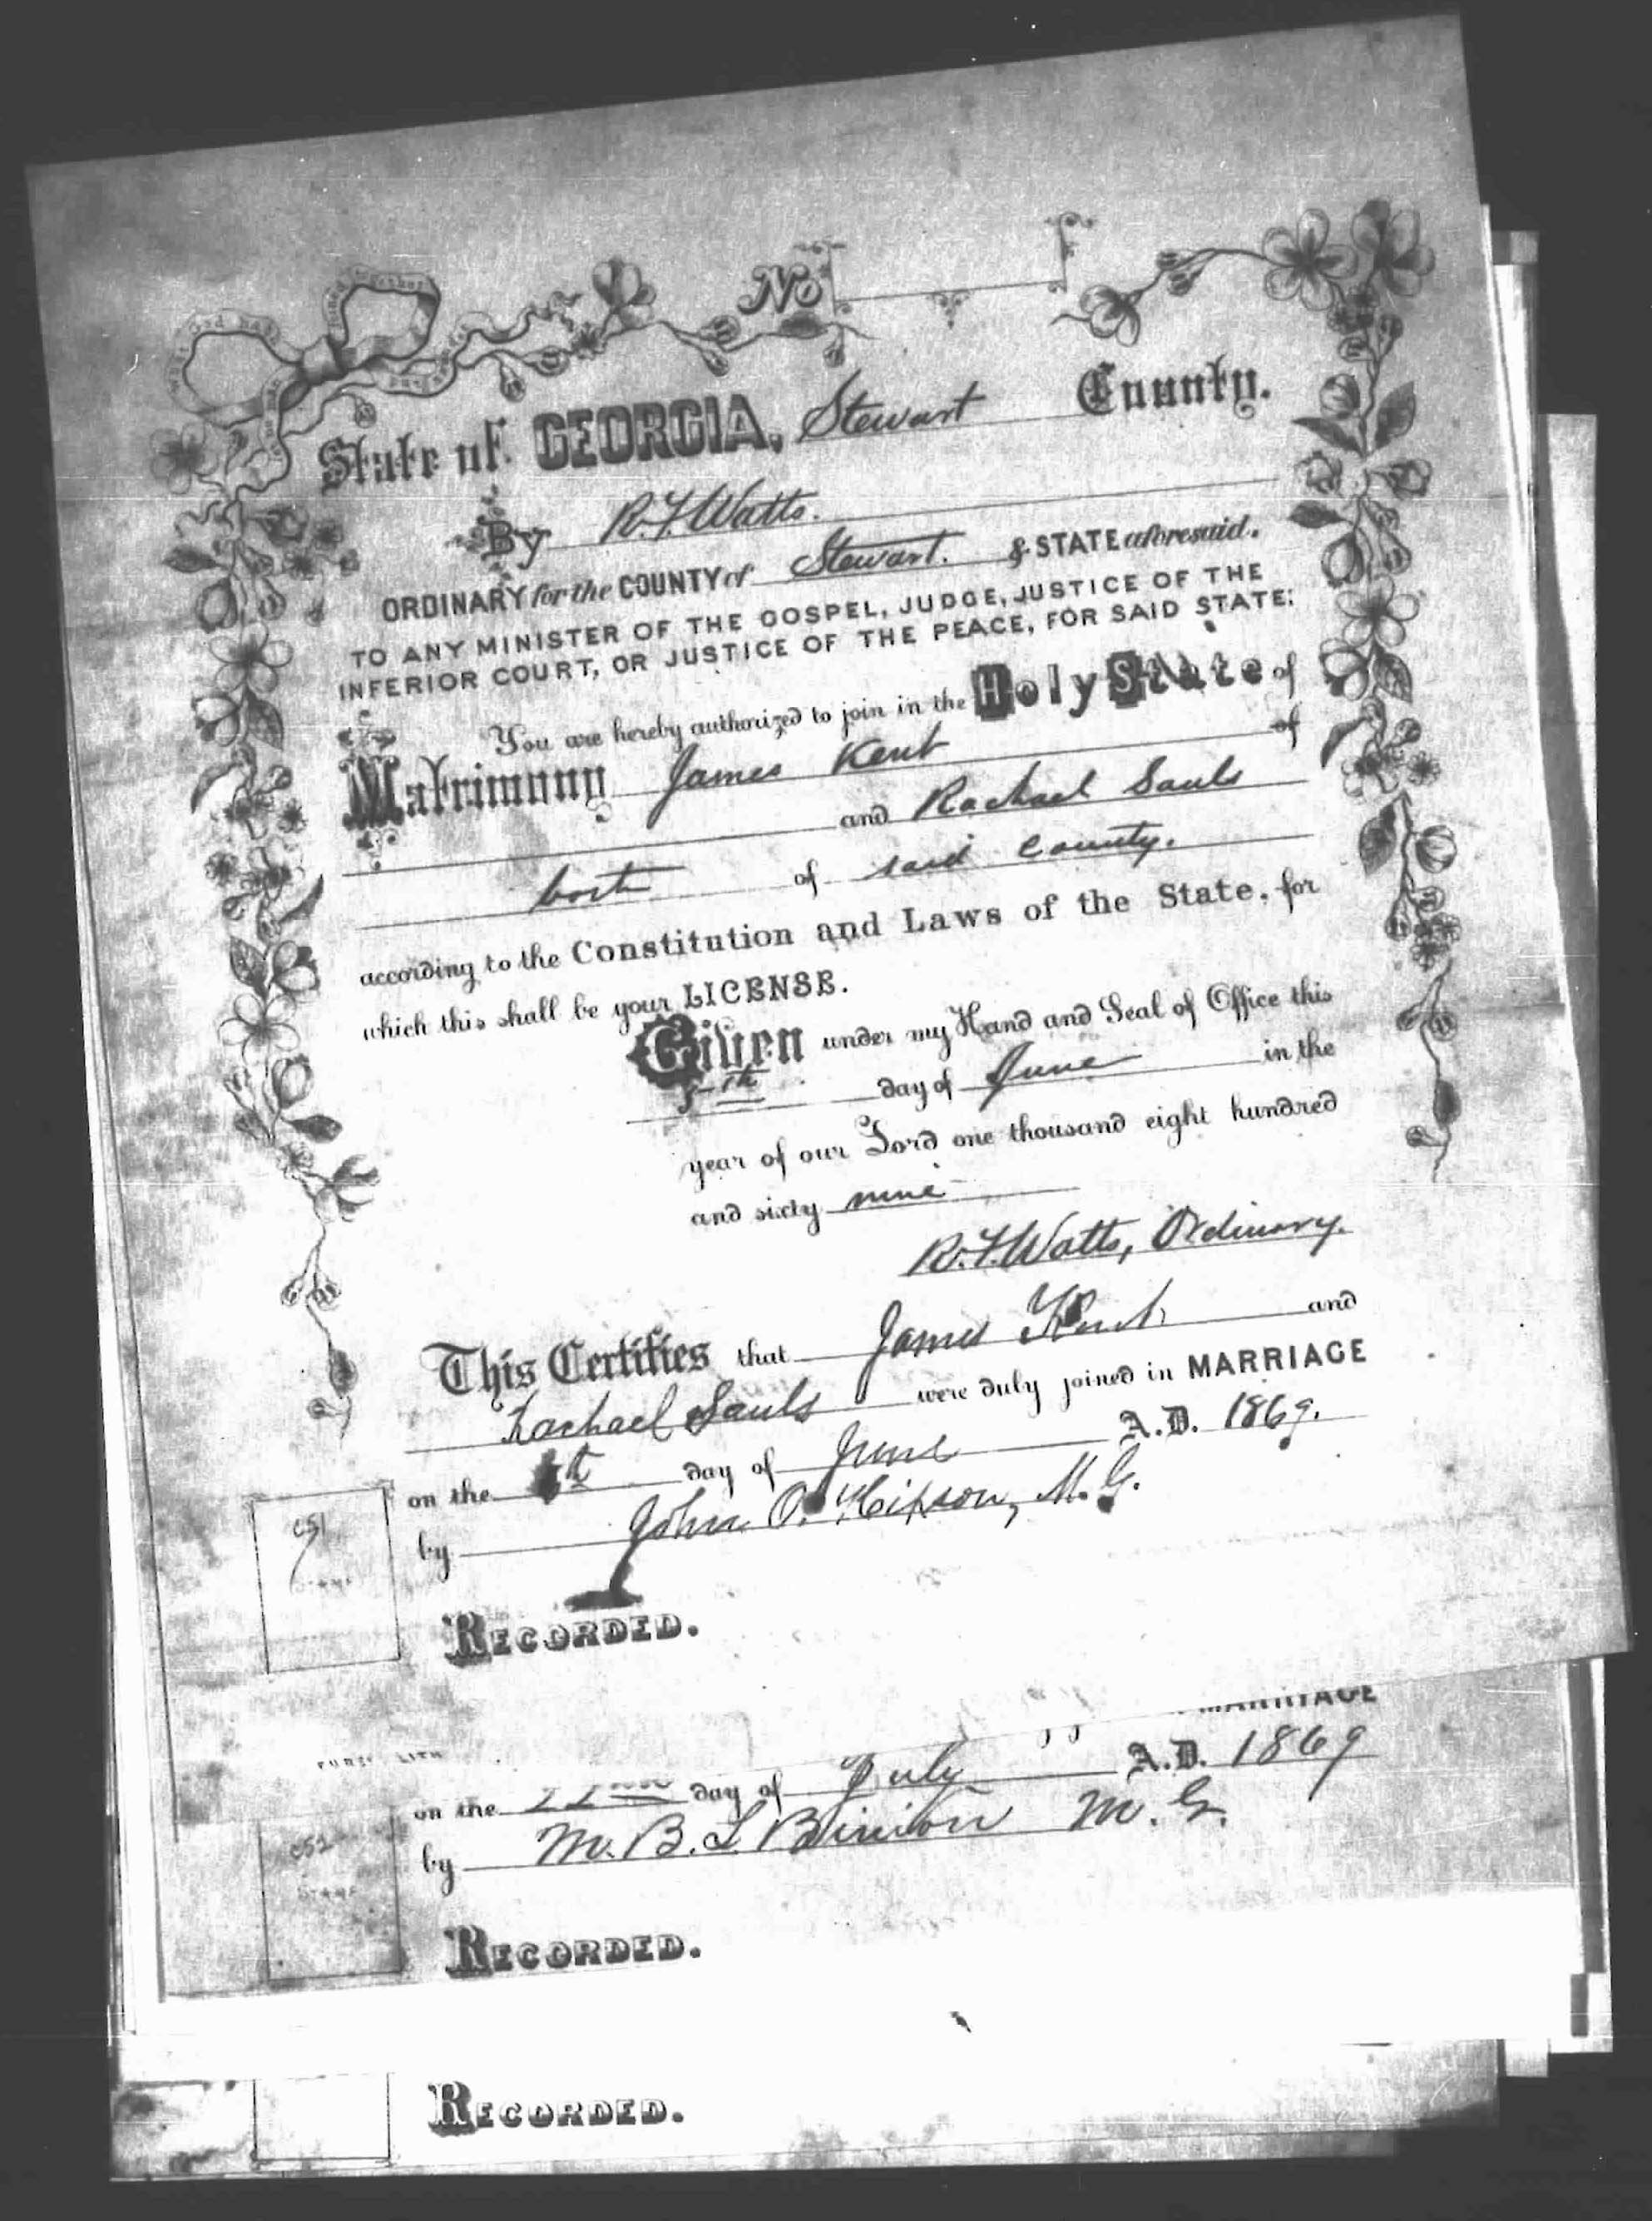 What God hath joined together
let no man put asunder
No
State of GEORGIA, Stewart County.
By R.F. Watts.
ORDINARY for the COUNTY of Stewart. & STATE aforesaid.
TO ANY MINISTER OF THE GOSPEL, JUDGE, JUSTICE OF THE
INFERIOR COURT, OR JUSTICE OF THE PEACE, FOR SAID STATE:
You are hereby authorized to join in the Holy State of
Matrimony James Kent of
and Rachael Sauls
both of said county.
according to the Constitution and Laws of the State, for
which this shall be your LICENSE.
Given under my Hand and Seal of Office this
5th day of June in the
year of our Lord one thousand eight hundred
and sixty nine
R.F. Watts, Ordinary.
This Certifies that James Kent and
Rachael Sauls were duly joined in MARRIAGE
on the day of June A.D. 1869.
by John O. Hixson, M.G.
STAMP
RECORDED.
MARRIAGE
on the 22nd day of July A.D. 1869
by M.B.L. Binion M.G.
STAMP
RECORDED.
RECORDED.